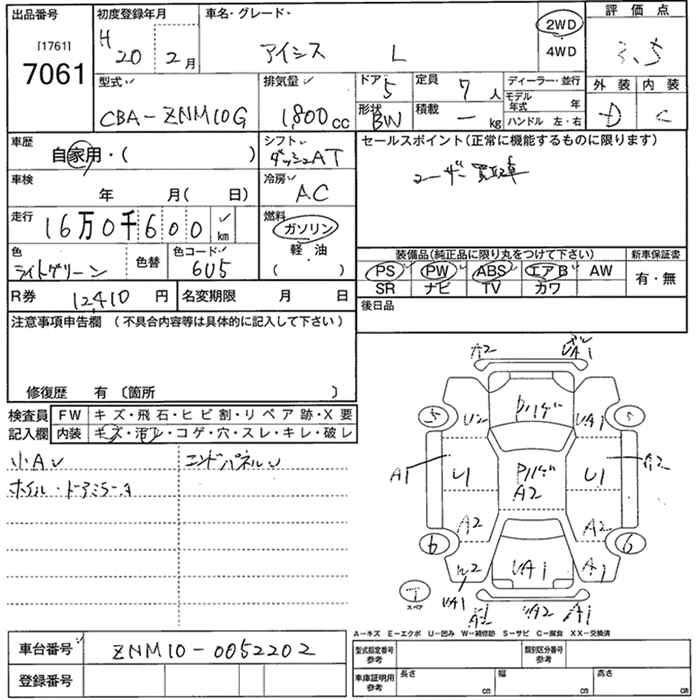 出品番号 初度登録年月 車名・グレード 2WD 評価点
[1761] H 20年 2月 アイシス L 4WD 3.5
7061
型式 排気量 ドア 5 定員 7人 ディーラー・並行 外装 内装
CBA-ZNM10G 1,800cc 形状 BW 積載 ー kg モデル年式 年 D C
ハンドル 左・右
車歴 シフト セールスポイント(正常に機能するものに限ります)
自家用・( ) ダッシュAT ユーザー買取車
車検 冷房
年 月( 日) AC
走行 燃料
16万0千600 km ガソリン
色 色替 色コード 軽油
ライトグリーン 6U5 ( )
装備品(純正品に限り丸をつけて下さい) 新車保証書
PS PW ABS エアB AW 有・無
SR ナビ TV カワ
R券 12410円 名変期限 月 日 後日品
注意事項申告欄(不具合内容等は具体的に記入して下さい)
修復歴 有〔箇所 〕
検査員 FW キズ・飛石・ヒビ割・リペア跡・X要
記入欄 内装 キズ・汚レ・コゲ・穴・スレ・キレ・破レ
小A エンドパネルU
ホイル・ドアミラーA
A2 UA1
5 U2 Pハゲ UA1
A1 U1 Pハゲ A2 U1 A2
A2 A2
6 U2 UA1 A1 6
スペア UA1 A1 UA2 A1
A-キズ E-エクボ U-凹み W-補修跡 S-サビ C-腐食 XX-交換済
車台番号 ZNM10-0052202 型式指定番号 参考 類別区分番号 参考
登録番号 車庫証明用 参考 長さ cm 幅 cm 高さ cm